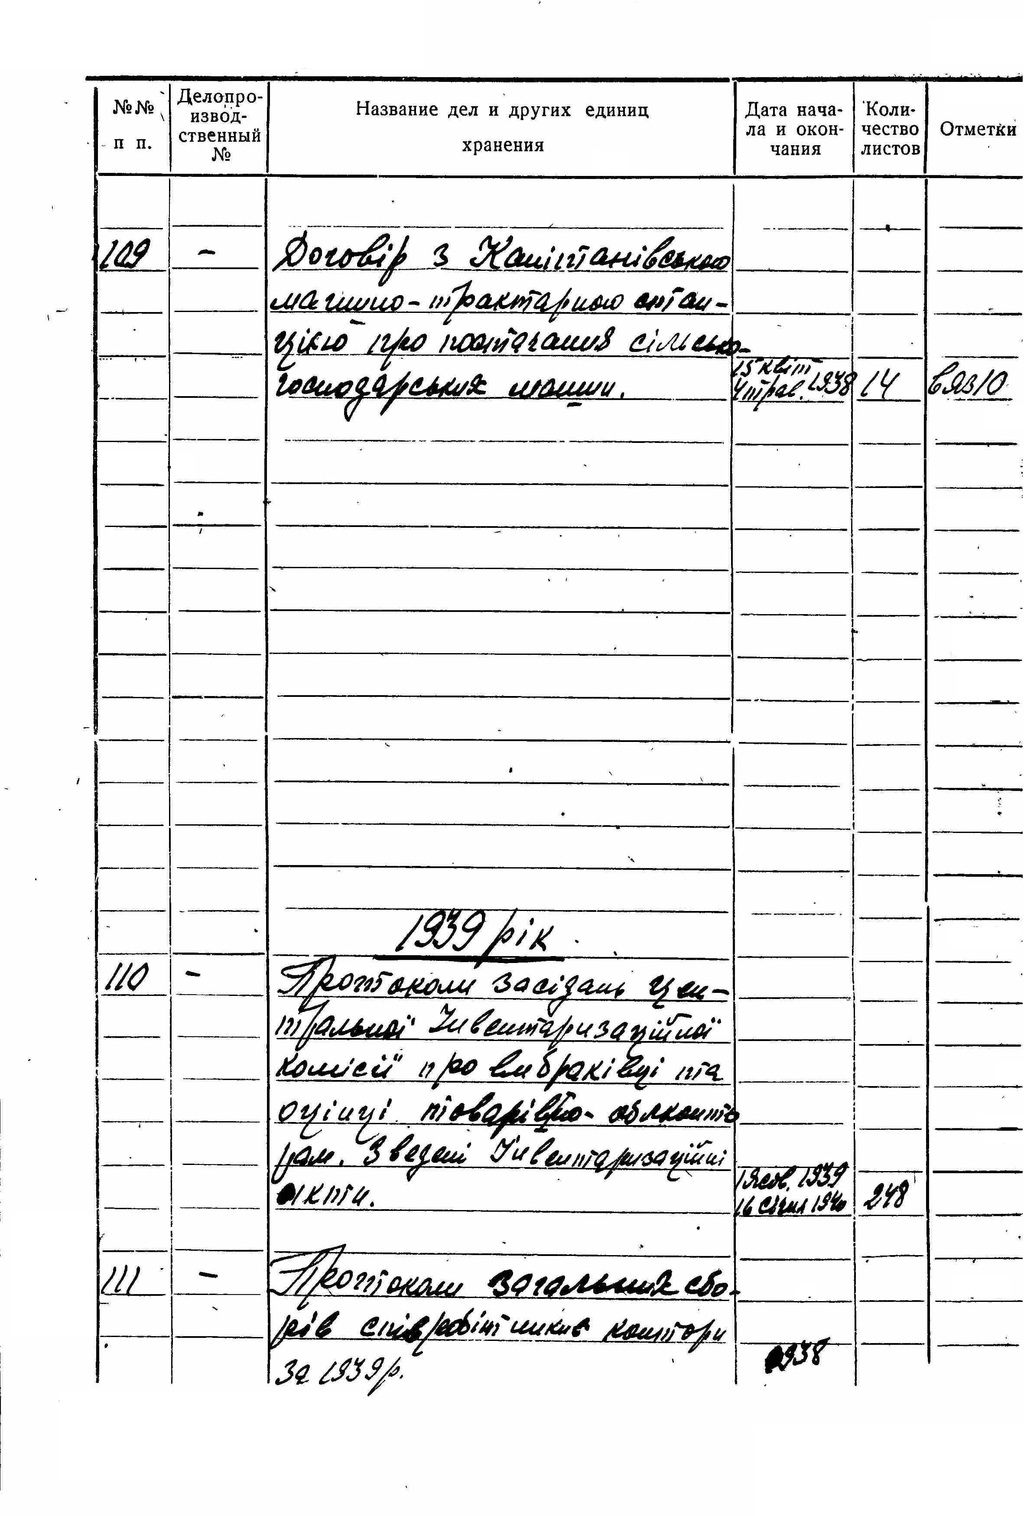 №№ п п.
Делопроизводственный №
Название дел и других единиц хранения
Дата начала и окончания
Количество листов
Отметки
109 -
Договір з Капітанівською
машино-тракторною стан-
цією про постачання сільсько-
господарських машин.
15 квіт
4 трав. 1938
14
1939 рік
110 -
Протоколи засідань Цен-
тральної Інвентаризаційної
комісії про вибраківці та
оцінці товарів по облконто
рам. Зведені Інвентаризаційні
акти.
1939
16 січня 1940
248
111 -
Протоколи загальних сбо-
рів співробітників контори
за 1939 р.
1938